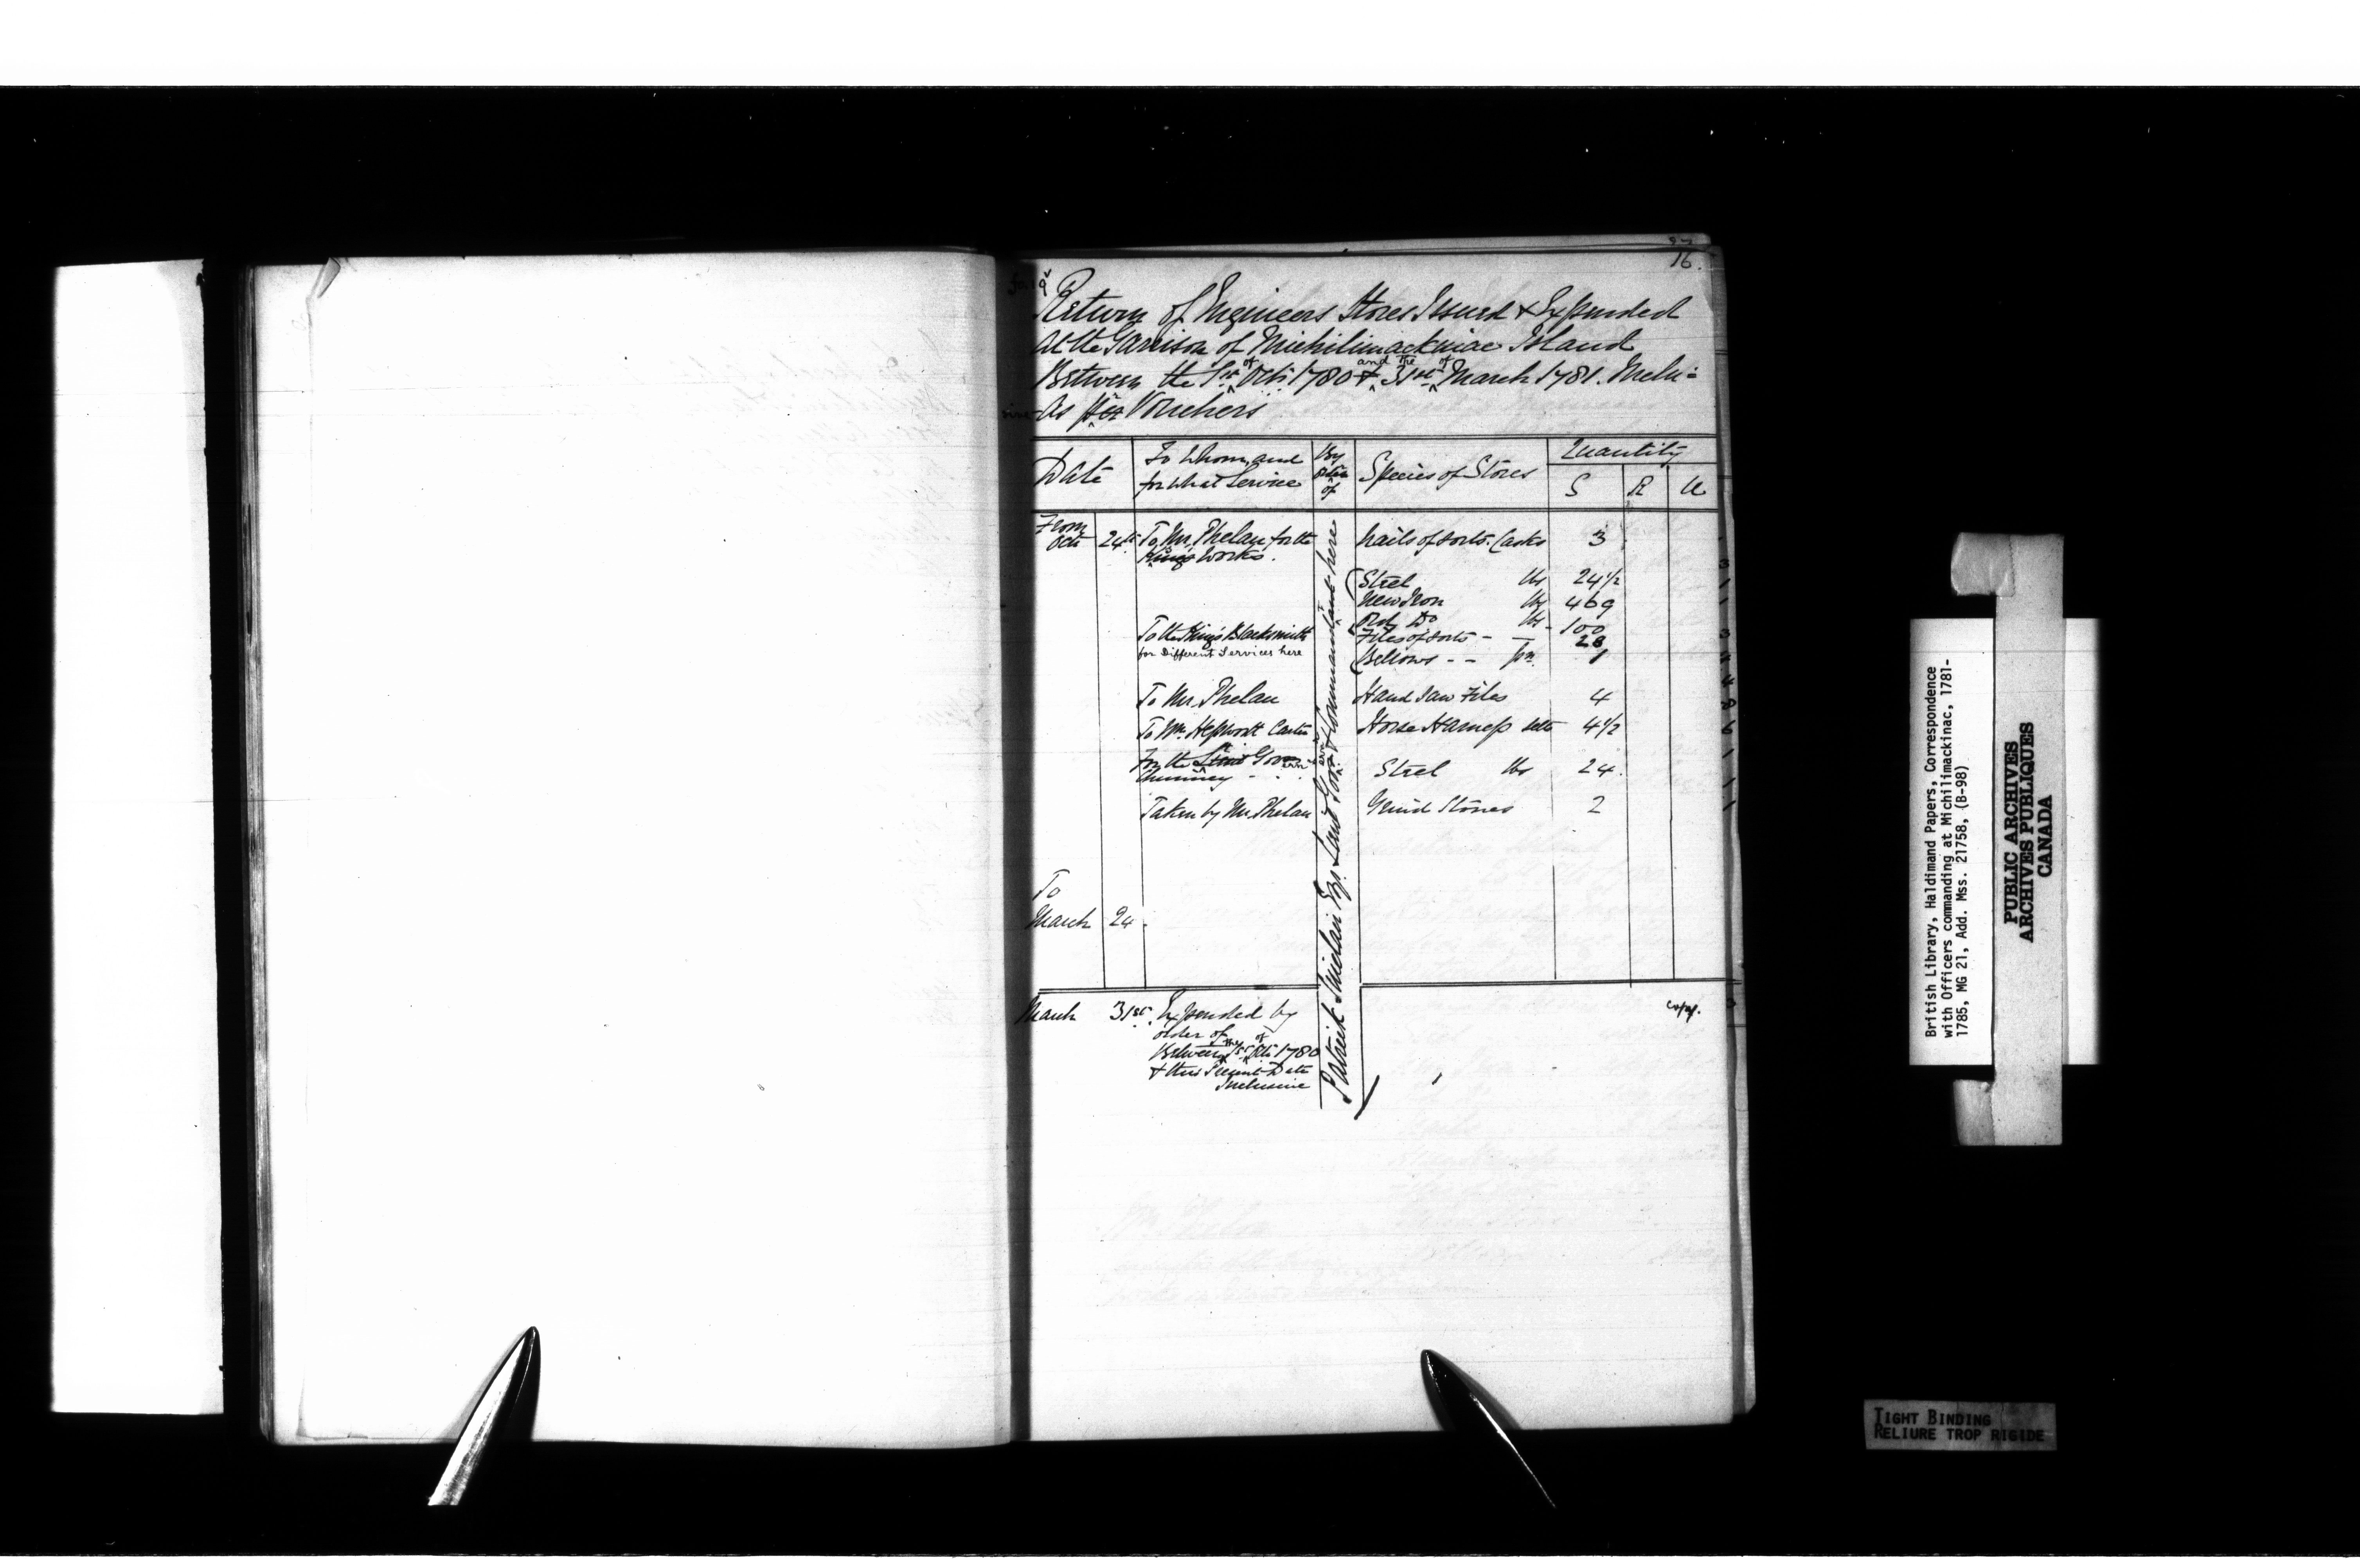 16.
Return of Engineers Stores Issued & Expended
At the Garrison of Michilimackinac Island
and the of
Between the 1st of Octr 1780 & 31st March 1781. Inclu=
sive As per Vouchers
Date To Whom, and for what Service By order of Species of Stores Quantity
S R U
From
Octr 24th To Mr. Phelan for the Nails of sorts. Casks 3
King's Works.
Steel lbs 24 1/2
New Iron lbs 469
Old Do lbs - 100
To the King's Blacksmith Files of sorts - — 28
for Different Services here Bellows - - pr. 1
To Mr. Phelan Hand Saw Files 4
To Mr. Hepworth Carter Horse Harness setts 4 1/2
for the Lieut Govern
Chimney - . . Steel lbs 24.
Taken by Mr. Phelan Grind Stones 2
To
March 24.
Patrick Sinclair Esqr. Lieut Govr & Commandant here
March 31st. Expended by
order of
Between the 1st of Octr 1780
& this Present Date
Inclusive
Copy.
British Library, Haldimand Papers, Correspondence
with Officers commanding at Michilimackinac, 1781-
1785, MG 21, Add. Mss. 21758, (B-98)
PUBLIC ARCHIVES
ARCHIVES PUBLIQUES
CANADA
TIGHT BINDING
RELIURE TROP RIGIDE